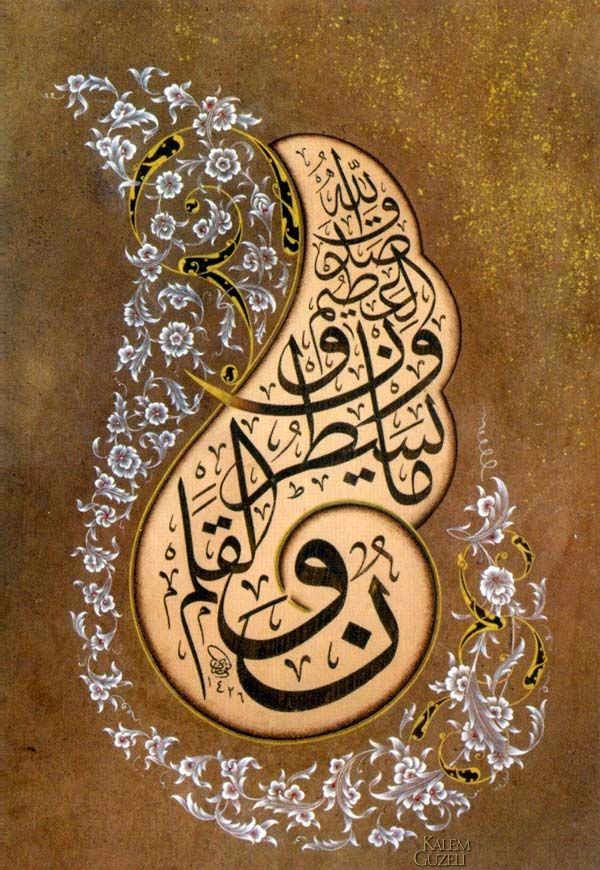 ن والقلم
وما يسطرون
صدق الله العظيم
١٤٢٦
KALEM
GÜZELİ